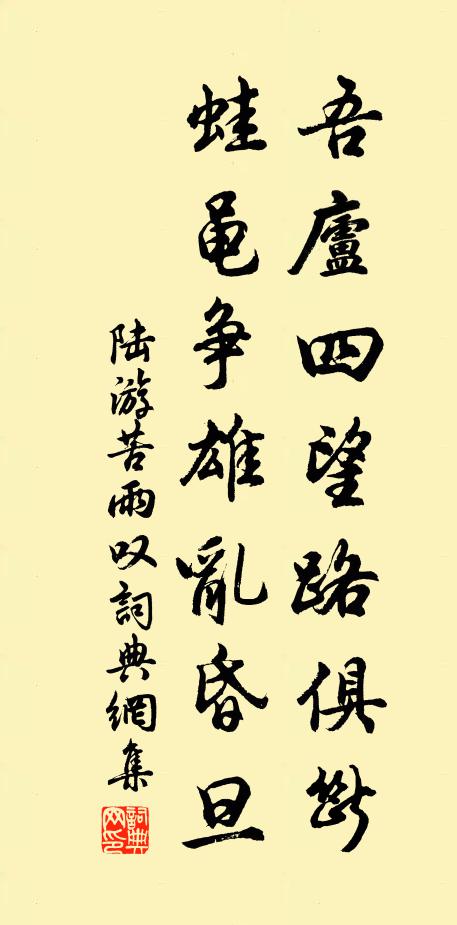 吾廬四望路俱斷
蛙黽争雄亂昏旦
陆游苦雨叹詞典網集
詞典網印